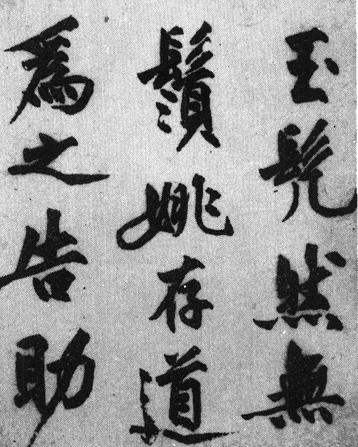 玉髡然無
鬚姚存道
爲之告助